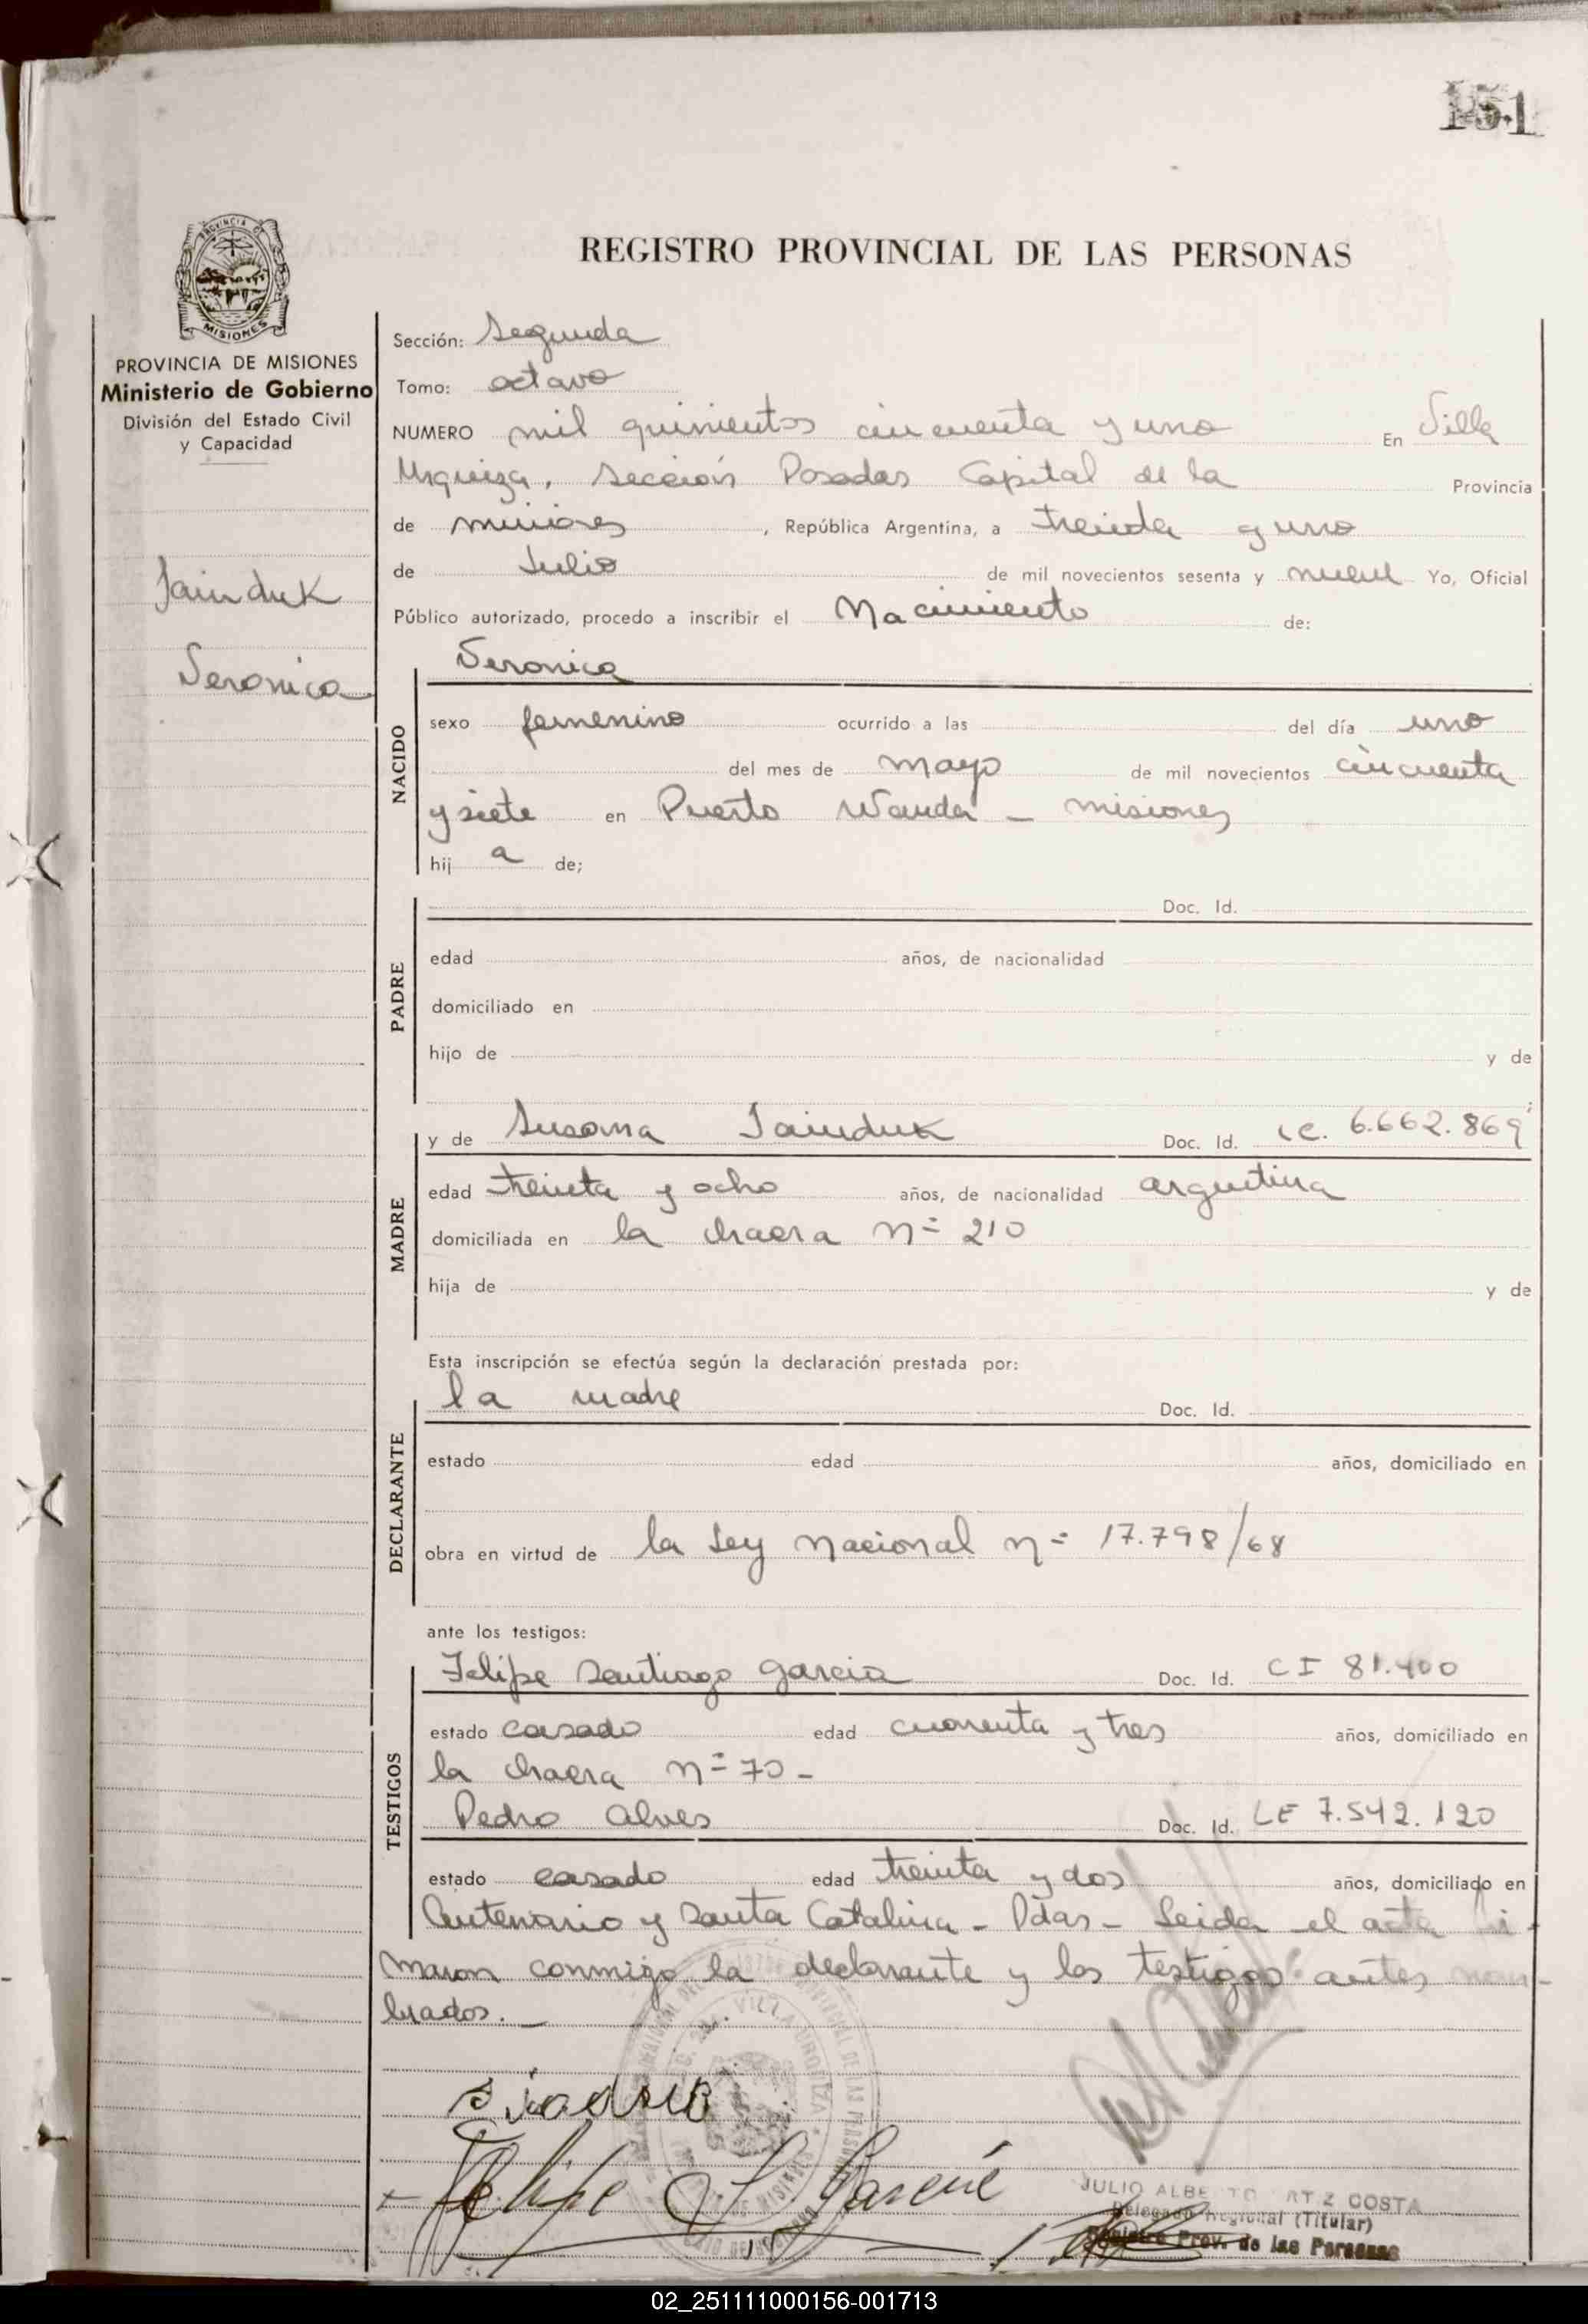 151
REGISTRO PROVINCIAL DE LAS PERSONAS
PROVINCIA DE MISIONES
Ministerio de Gobierno
División del Estado Civil
y Capacidad
Jainduk
Veronica
Sección: Segunda
Tomo: octavo
NUMERO mil quinientos cincuenta y uno En Villa
Urquiza, Sección Posadas Capital de la Provincia
de misiones, República Argentina, a treinta y uno
de Julio de mil novecientos sesenta y nueve Yo, Oficial
Público autorizado, procedo a inscribir el Nacimiento de:
Veronica
NACIDO
sexo femenino ocurrido a las del día uno
del mes de mayo de mil novecientos cincuenta
y siete en Puerto Wanda - misiones
hij a de;
PADRE
Doc. Id.
edad años, de nacionalidad
domiciliado en
hijo de y de
MADRE
y de Susana Jainduk Doc. Id. LC. 6.662.869
edad treinta y ocho años, de nacionalidad argentina
domiciliada en la chacra n= 210
hija de y de
Esta inscripción se efectúa según la declaración prestada por:
DECLARANTE
la madre Doc. Id.
estado edad años, domiciliado en
obra en virtud de la Ley Nacional n= 17.798/68
ante los testigos:
TESTIGOS
Felipe Santiago Garcia Doc. Id. CI 81.400
estado casado edad cuarenta y tres años, domiciliado en
la chacra n= 70 -
Pedro Alves Doc. Id. LE 7.542.120
estado casado edad treinta y dos años, domiciliado en
Centenario y Santa Catalina - Pdas - Leida el acta fir-
maron conmigo la declarante y los testigos antes nom-
brados. -
VILLA URQUIZA
Felipe S Garcia
JULIO ALBE TO RTZ COSTA
Delegado Regional (Titular)
Registro Prov. de las Personas
02_251111000156-001713